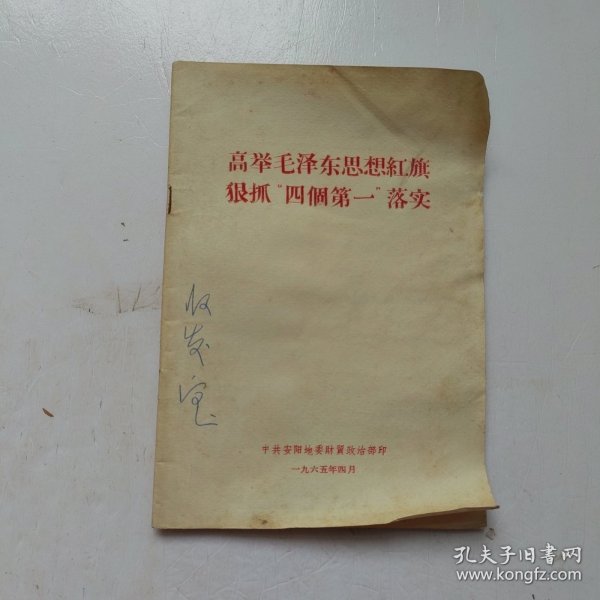 高举毛泽东思想紅旗
狠抓“四個第一”落实
收发室
中共安阳地委財貿政治部印
一九六五年四月
孔夫子旧书网
www.kongfz.com